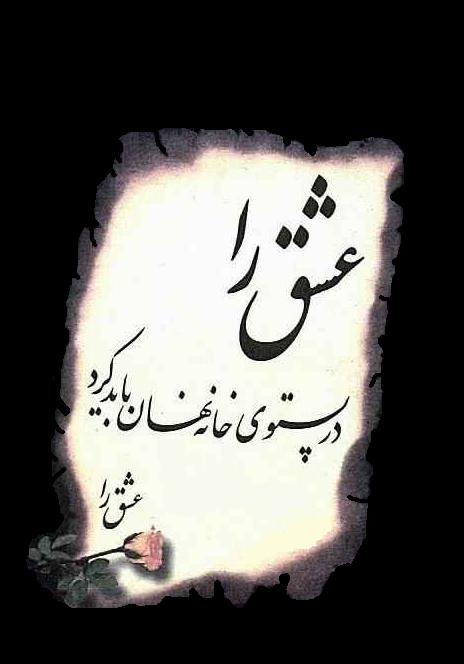 عشق را
در پستوی خانه نهان باید کرد
عشق را